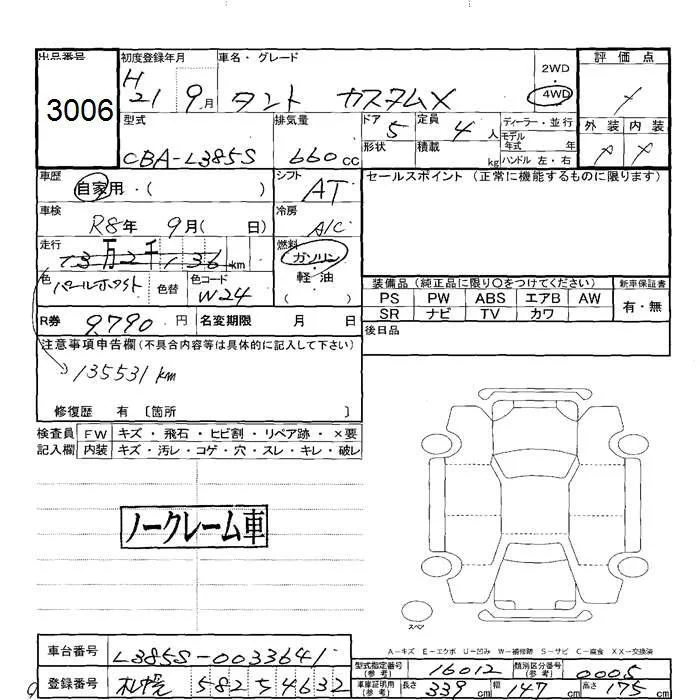 出品番号 3006
初度登録年月 H21 9月
車名・グレード タント カスタムX
2WD
4WD
評価点
外装 内装
型式 CBA-L385S
排気量 660cc
ドア 5 定員 4人
形状 積載 kg
ディーラー・並行
モデル年式 年
ハンドル 左・右
車歴 自家用・( )
シフト AT
セールスポイント (正常に機能するものに限ります)
車検 R8年 9月( 日)
冷房 A/C
走行 13万2千136km
燃料 ガソリン・軽・油 ( )
色 パールホワイト 色替 色コード W24
R券 9,790円 名変期限 月 日
装備品 (純正品に限り〇をつけてください) 新車保証書
PS PW ABS エアB AW 有・無
SR ナビ TV カワ
後日品
注意事項申告欄 (不具合内容等は具体的に記入して下さい)
135531km
修復歴 有 〔箇所 〕
検査員 FW キズ・飛石・ヒビ割・リペア跡・×要
記入欄 内装 キズ・汚レ・コゲ・穴・スレ・キレ・破レ
ノークレーム車
スペア
A－キズ E－エクボ U－凹み W－補修跡 S－サビ C－腐食 XX－交換済
車台番号 L385S-0033641
型式指定番号 (参考) 16012 類別区分番号 (参考) 0005
登録番号 札幌 582 5 4632
車庫証明用 (参考) 長さ 339cm 幅 147cm 高さ 175cm